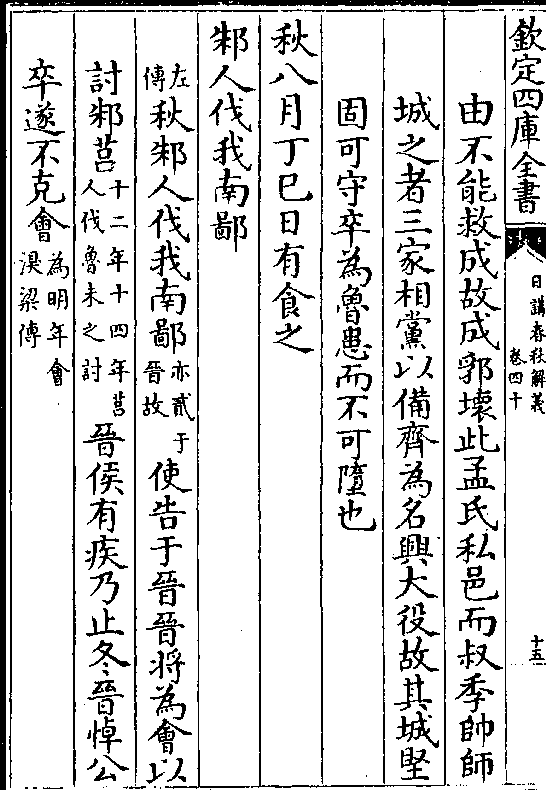 欽定四庫全書
日講春秋解義
卷四十
十五
由不能救成故成郛壞此孟氏私邑而叔季帥師
城之者三家相黨以備齊為名興大役故其城堅
固可守卒為魯患而不可墮也
秋八月丁巳日有食之
邾人伐我南鄙
左傳秋邾人伐我南鄙亦貳于晉故使告于晉晉將為會以
討邾莒十二年十四年莒人伐魯未之討晉侯有疾乃止冬晉悼公
卒遂不克會為明年會湨梁傳